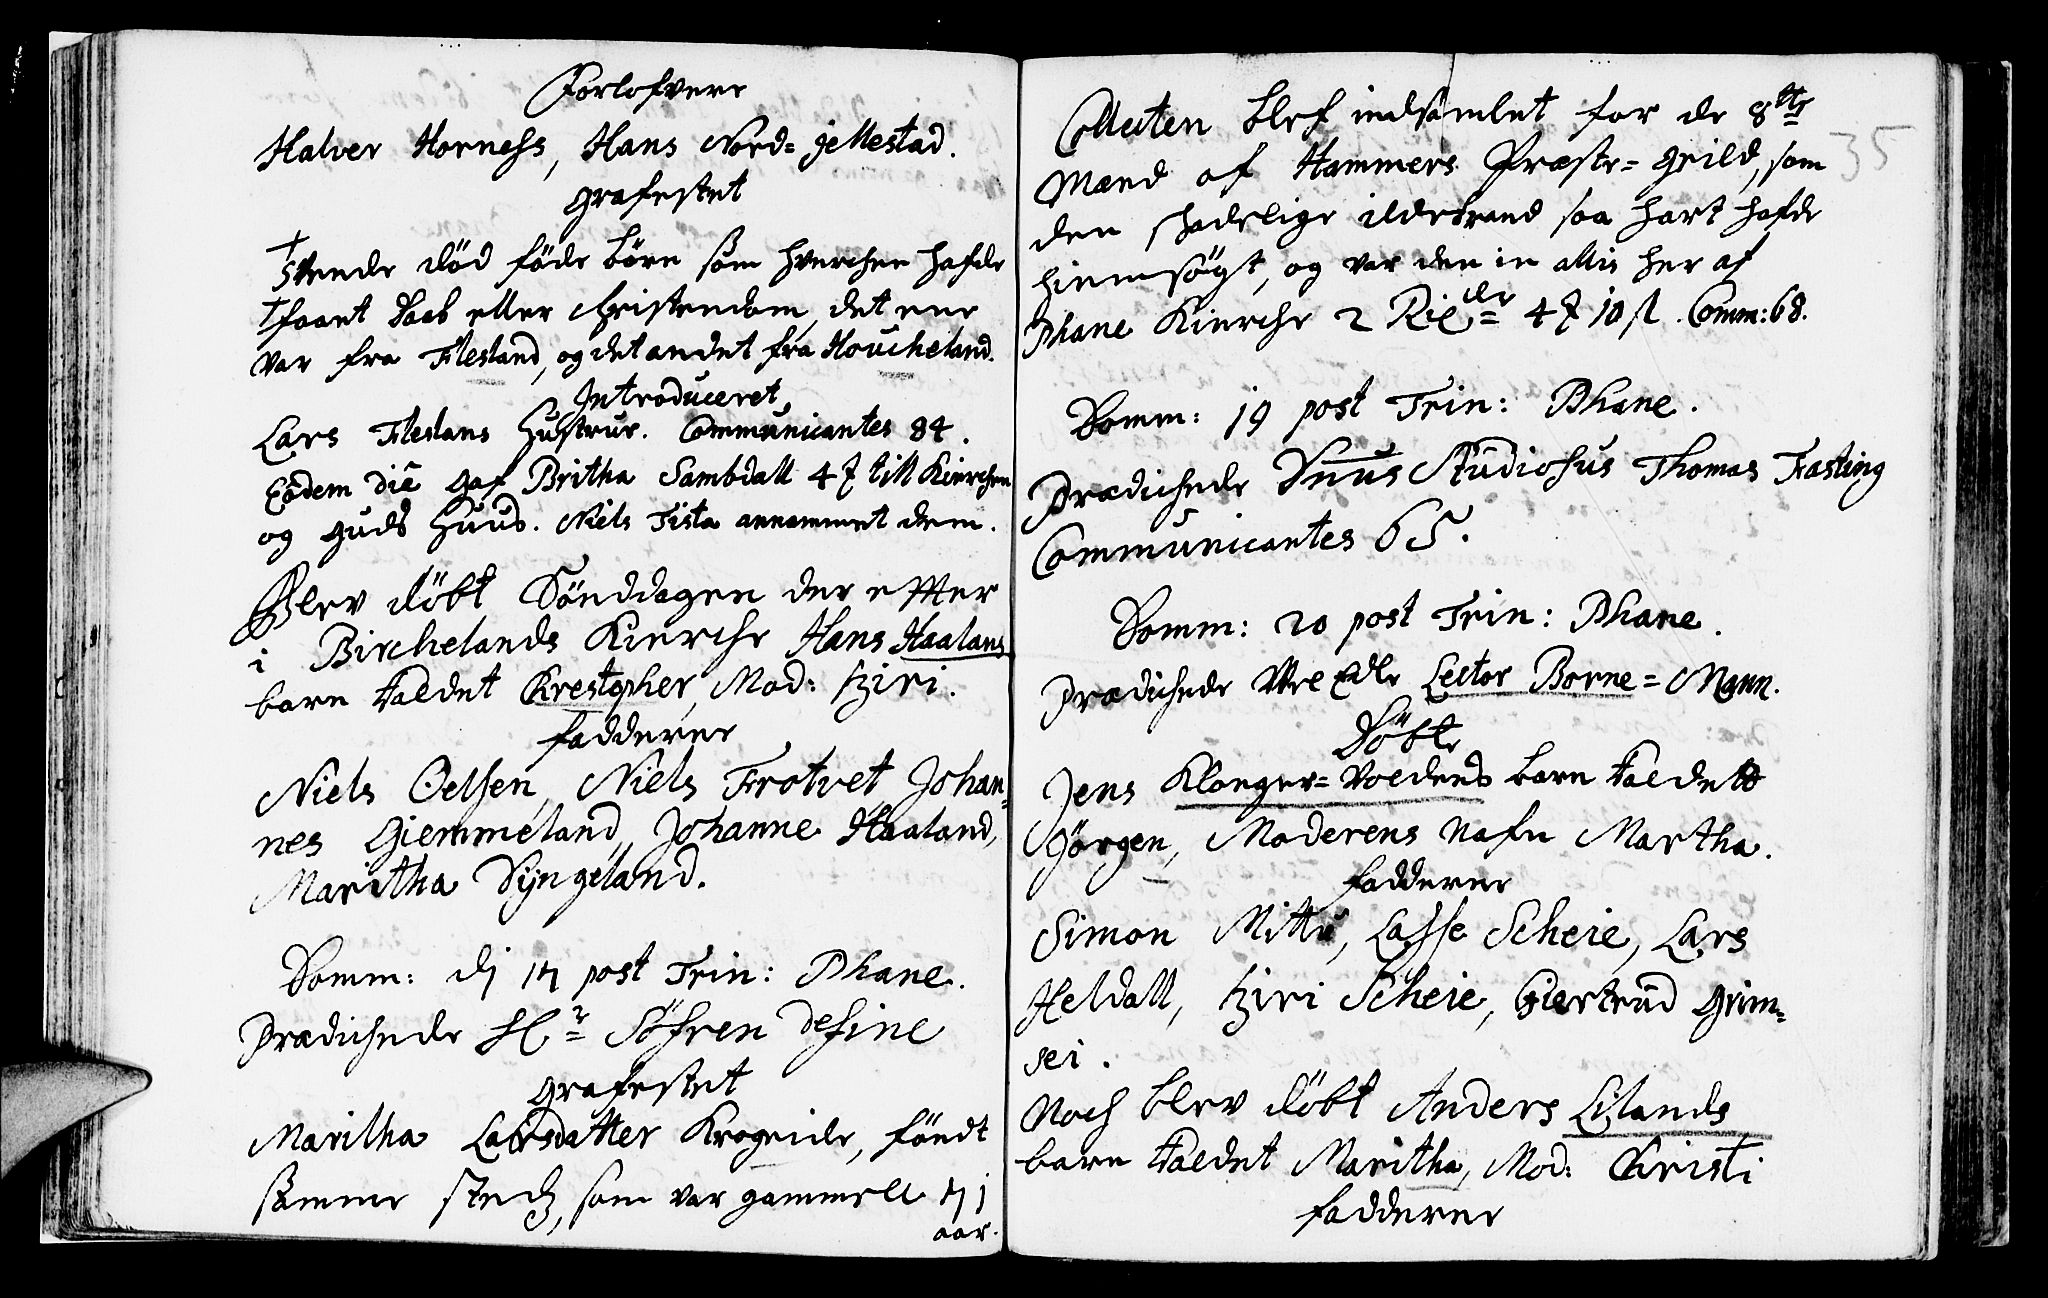 Forlofvere
Halver Horness, Hans Nord= jellestad.
Grafestet
† Tvende död föde börn som hverchen hafde
† faaet daab eller christendom, det ene
var fra Flesland, og det andet fra Houcheland.
Introduceret
Lars Fleslans Hustrue. Communicantes 84.
Eodem die gaf Britha Sambdall 4 till Kierchen
og Guds Huus. Niels Tista annammet dem.
Blev döbt Sönddagen der effter
i Birchelands Kierche Hans Haalans
barn kaldet Chrestopher, Mod: Kziri.
fadderne
Niels Oelsen, Niels Frotvet Johan=
nes Giemmeland, Johanne Haaland,
Maritha Dyngeland.
Domm: dj 17 post Trin: Phane.
Prædichede Hr Söfren Define
Grafestet
Maritha Larsdatter Krogeide, föedt
samme stedz, som var gammell 71
aar.
35
Collecten blef indsamlet for de 8te
Mænd af Hammers Præste= Geild, som
den skadelige ildebrand saa hart hafde
hiemsögt, og var den in alles her af
Phane Kierche 2 Rixdr 4 10 s. Comm: 68.
Domm: 19 post Trin: Phane.
Prædichede Dnus Studiosus Thomas Fasting
Communicantes 65.
Domm: 20 post Trin: Phane.
Prædichede Vel Edle Lector Borne= Mann.
Döbte
Jens Klonger= Voldens barn kaldett
Jörgen, Moderens nafn Martha.
fadderne
Simon Mittu, Lasse Scheie, Lars
Heldall, Kziri Scheie, Giertrud Grim=
sei.
Noch blev döbt Anders Lilands
barn kaldet Maritha, Mod: Christi
fadderne